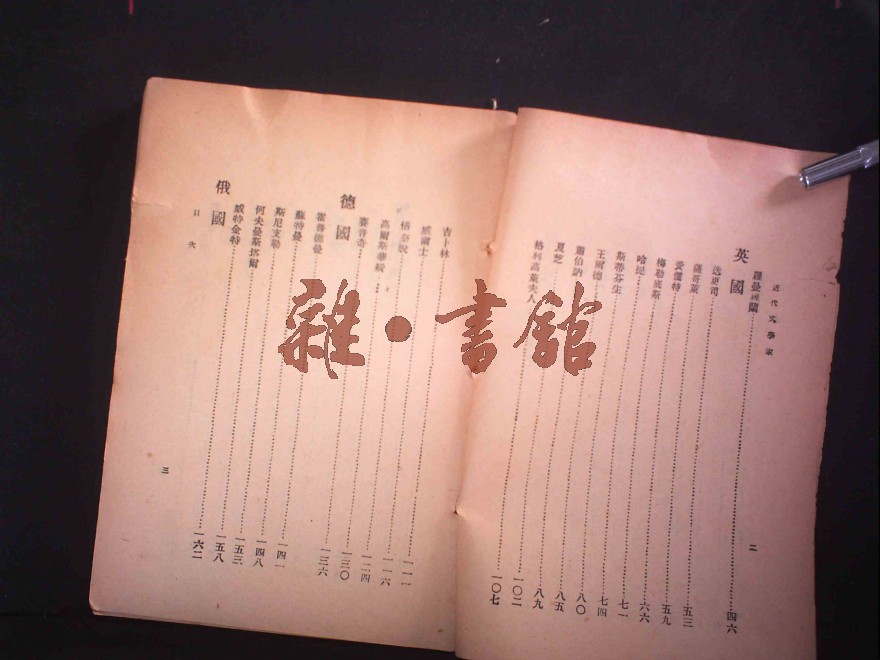 近代文學家
二
羅曼羅蘭……四六
英國
迭更司……五三
薩哥萊……五九
愛儷特……六六
梅勒底斯……七一
哈提……七四
斯蒂芬生……八〇
王爾德……八五
蕭伯訥……八九
夏芝……一〇二
格利高萊夫人……一〇七
吉卜林……一一一
威爾士……一一六
……一二四
高爾斯華綏……一三〇
德國
……一三六
霍普德曼……一四一
蘇特曼……一四八
斯尼支勒……一五三
何夫曼斯塔爾……一五八
威特金特……一六二
俄國
目次
三
雜·書館